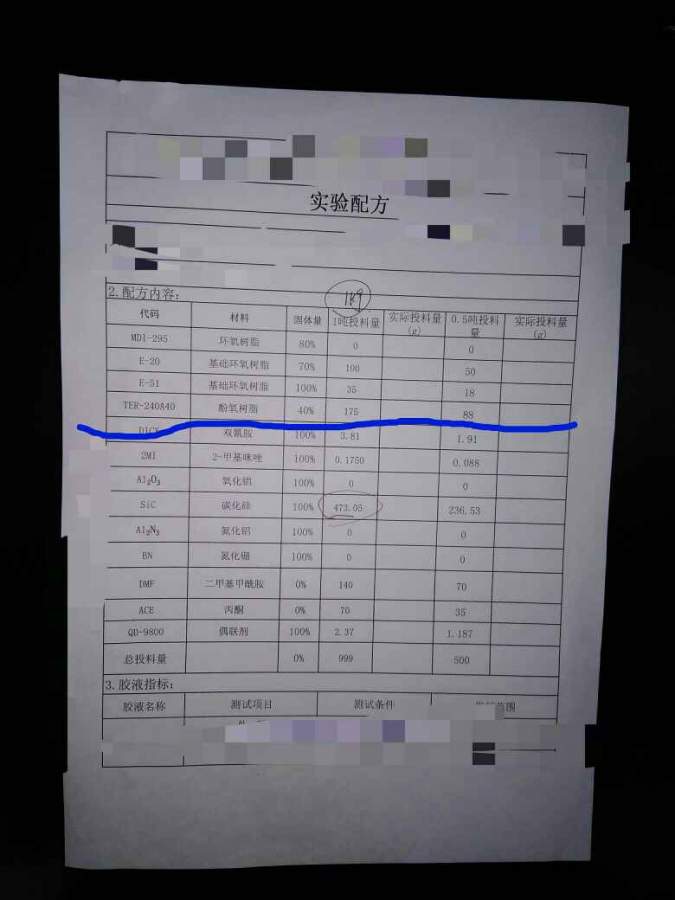 实验配方
2.配方内容:
1kg
代码 材料 固体量 1吨投料量 实际投料量(g) 0.5吨投料量 实际投料量(g)
MD1-295 环氧树脂 80% 0 0
E-20 基础环氧树脂 70% 100 50
E-51 基础环氧树脂 100% 35 18
TER-240A40 酚氧树脂 40% 175 88
双氰胺 100% 3.81 1.91
2MI 2-甲基咪唑 100% 0.1750 0.088
Al₂O₃ 氧化铝 100% 0 0
SiC 碳化硅 100% 473.05 236.53
Al₂N₃ 氮化铝 100% 0 0
BN 氮化硼 100% 0 0
DMF 二甲基甲酰胺 0% 140 70
ACE 丙酮 0% 70 35
QD-9800 偶联剂 100% 2.37 1.187
总投料量 0% 999 500
3.胶液指标:
胶液名称 测试项目 测试条件 范围